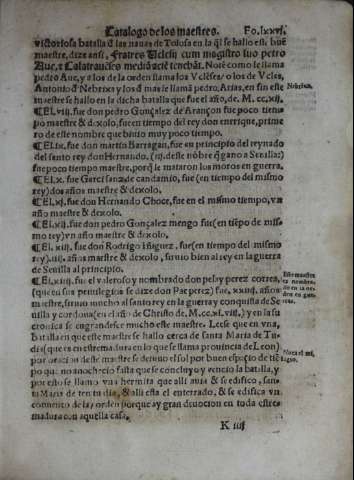 Catalogo de los maestres. Fo. lxxvj.
victoriosa batalla d̄ las nauas de Tolosa en la q̄l se hallo est. buē
maestre, dize ansi, Fratres Vclesij cum magistro suo petro
Aue, & Calatraueēs mediā aciē tenebāt. Note como le llama
pedro Aue, y a los de la orden llama los Vclēses/o los de Vcles,
Antonio d̄ Nebrixa y los d̄ mas le llamā pedro Arias, en sin este
Nebrixa.
maestre se hallo en la dicha batalla que fue el año, de M. cc, xij.
¶ El. viij. fue don pedro Gonçalez de Arançon fue poco tiem
po maestre & dexolo, fue en tiempo del rey don enrrique, prime
ro de este nombre que biuio muy poco tiempo.
¶ El ix, fue don martin Barragan, fue en principio del reynado
del santo rey don Hernando, (iij. deste nōbre q̄ gano a Seuilla:)
fue poco tiempo maestre, porq̄ le mataron los moros en guerra,
¶ El. x. fue Garci sanz de candamio, fue (en tiempo del mismo
rey) dos años maestre & dexolo.
¶ El. xj. fue don Hernando Choce, fue en el mismo tiempo, vn
año maestre & dexolo.
¶ El. xij. fue don pedro Gonçalez mengo fue (en tiēpo de mis
mo rey) vn año maestre & dexolo.
¶ El. xiij. fue don Rodrigo iñiguez, fue (en tiempo del mismo
rey) iij. años maestre & dexolo, siruio bien al rey en la guerra
de Seuilla al principio.
¶ El. xiiij. fue el valeroso y nombrado don pelay perez correa,
(que en sus priuilegios se dize don Par perez) fue, xxiiij. años
maestre, siruio mucho al santo rey en la guerra y conquista de Se
uilla y cordoua (en el año de Christo de, M. cc. xl. viij.) y en la su
coronica se engrandesce mucho este maestre. Leese que en vna,
Este maestre
es nombra
do en la or-
den en gue-
rra.
batalla en que este maestre se hallo cerca de santa Maria de Tu-
dia (que es en estremadura en lo que se llama prouincia de Leon)
por oracion deste maestre se detuuo el sol por buen espacio de tiē
Nota el mi,
lagro.
po que no anochecio fasta que se concluyo y vencio la batalla, y
por esto se llamo vna hermita que alli auia & se edifico, san-
ta Maria de ten tu dia, & alli esta el enterrado, & se edifica vn
conuento de la orden porque ay gran deuocion en toda estre-
madura con aquella casa.
K iiij